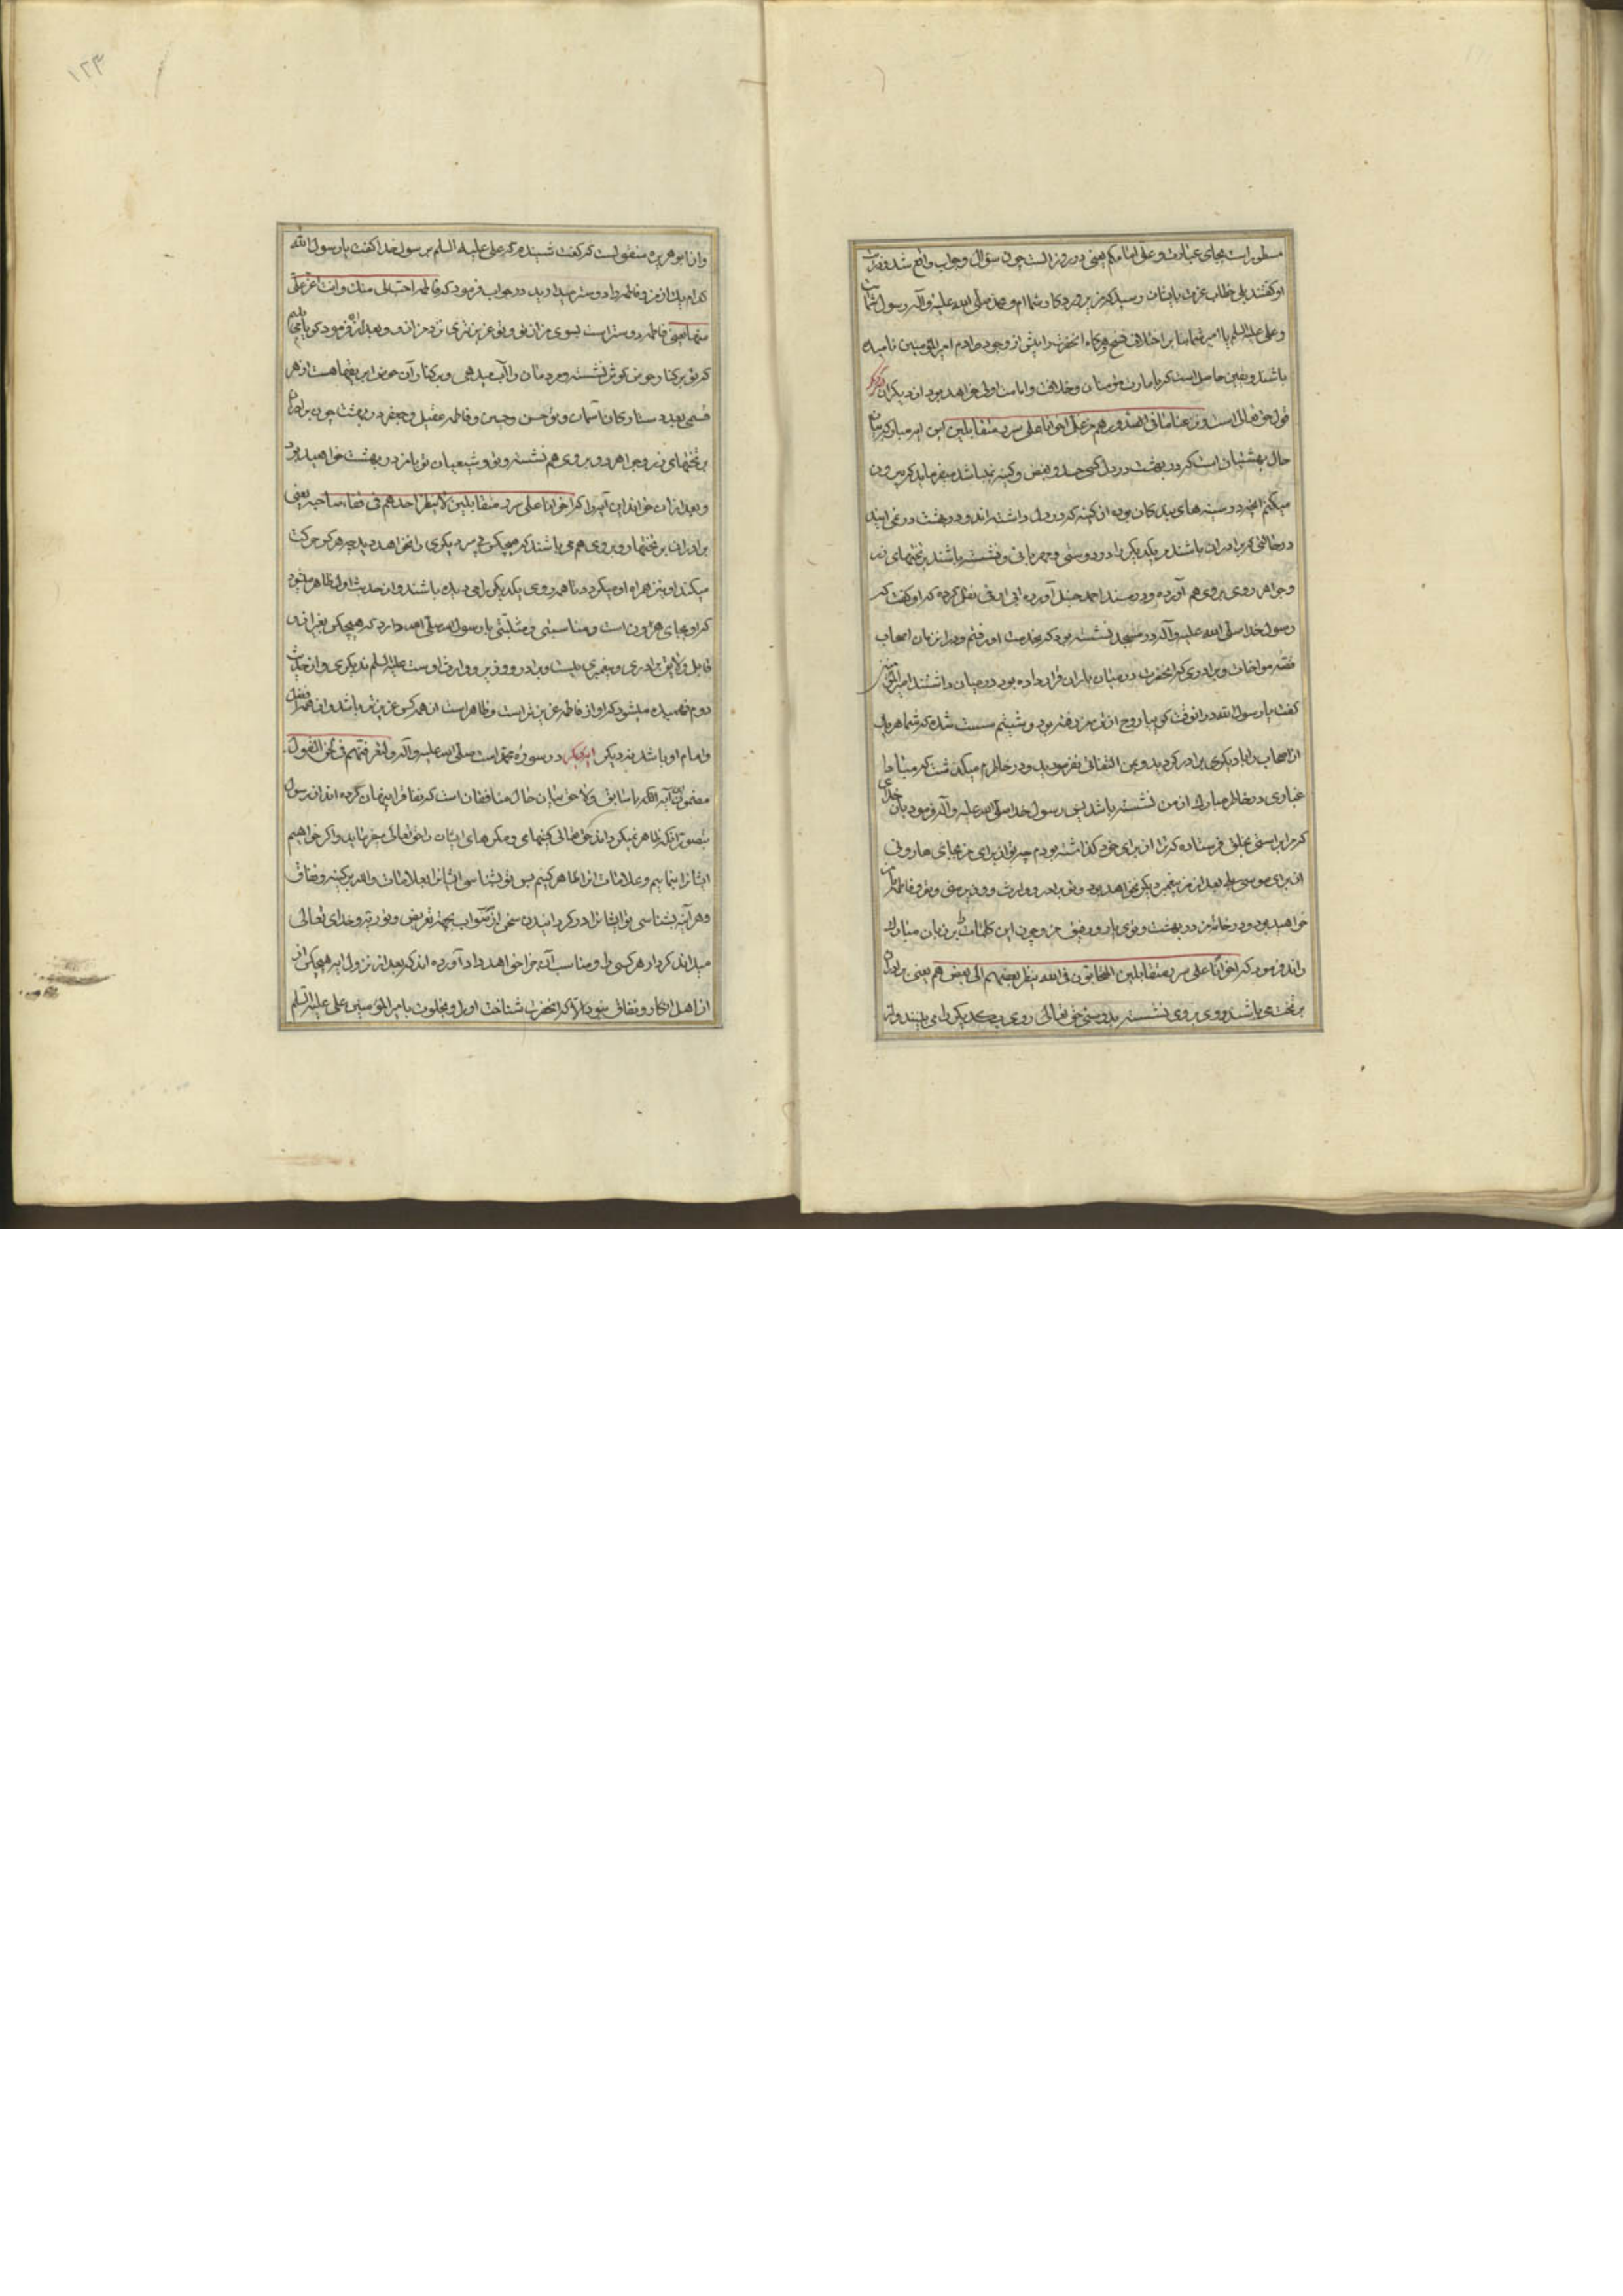 مسطور است بجای عبارت و علی امامکم یعنی در روز الست چون سؤال و جواب واقع شد و فرشتگان
او گفتند بلی خطاب عزت بایشان رسید که من پروردگار شماام و محمد صلی الله علیه و آله رسول شما
و علی علیه السلم یا امیر شما بنا بر اختلاف نسخ هرگاه آنحضرت را پیش از وجود آدم امیر المؤمنین نامیده
باشند و یقین حاصل است که بامارت مؤمنان و خلافت و امامت اولی خواهد بود از دیگران دیگر
قول حق تعالی است و نزعنا ما فی صدورهم من غل اخوانا علی سرر متقابلین این آیه مبارکه بیان
حال بهشتیان است که در بهشت در دل کسی حسد و بغض و کینه نمیباشد میفرماید که بیرون
میکنم آنچه در سینه های بندگان بوده از کینه که در دل داشته اند و در بهشت در نمی آیند
در حالتی که برادران باشند مر یکدیگر را در دوستی و مهربانی و نشسته باشند بر تختهای زر
و جواهر روی بروی هم آورده و در مسند احمد حنبل آورده ابی اوفی نقل کرده که او گفت که
رسول خدا صلی الله علیه و آله در مسجد نشسته بود که بخدمت او رفتم و در آن زمان اصحاب
قصه مواخات و برادری که آنحضرت در میان یاران قرار داده بود در میان داشتند امیر المؤمنین
گفت یا رسول الله در آنوقت گویا روح از تن من رفته بود و پشتم سست شده که شما هر یک
از اصحاب را با دیگری برادر کردید و بمن التفاتی نفرمودید و در خاطرم میگذشت که مبادا
غباری در خاطر مبارک از من نشسته باشد پس رسول خدا صلی الله علیه و آله فرمود بآن خدای
که مرا براستی بخلق فرستاده که ترا از برای خود گذاشته بودم چه تو از برای من بجای هارونی
از برای موسی علیه بعد از من پیغمبر دیگر نخواهد بود و تو برادر و وارث و وزیر منی و تو و فاطمه
خواهید بود در خانه من در بهشت و توئی یار و رفیق من و چون این کلمات بر زبان مبارک
راند فرمود که اخوانا علی سرر متقابلین المتحابون فی الله ینظر بعضهم الی بعض هم یعنی برادران
بر تخت می باشند روی بروی نشسته بدوستی حق تعالی روی یکدیگر را می بینند و از
۱۲۳
و از ابو هریره منقولست که گفت شنیدم که علی علیه السلم بر رسول خدا گفت یا رسول الله
کدام یک از من و فاطمه را دوستر میدارید در جواب فرمود که فاطمه احب الی منک و انت اعز علی
منها یعنی فاطمه دوستر است بسوی من از تو و تو عزیزتری نزد من از او و بعد از آن فرمود گویا می بینم
که تو بر کنار حوض کوثر نشسته و مردمان را آب میدهی و بر کنار آن حوض ابریقها هست از هر
قسمی بعدد ستارگان آسمان و تو و حسن و حسین و فاطمه و عقیل و جعفر در بهشت چون برادران
بر تختهای زر و جواهر رو بروی هم نشسته و تو و شیعیان تو با من در بهشت خواهید بود
و بعد از آن خواند این آیه را که اخوانا علی سرر متقابلین لا ینظر احدهم فی قفاء صاحبه یعنی
برادران بر تختها رو بروی هم می باشند که هیچکس پس سر دیگری را نخواهد دید چه هر که حرکت
میکند او نیز همراه او میگردد تا همه روی یکدیگر را می دیده باشند و از حدیث اول ظاهر میشود
که او بجای هارون است و مناسبتی و مثلیتی با رسول الله صلی الله دارد که هیچکس بغیر از او
قابل و لایق برادری و پیغمبری نیست و برادر و وزیر و وارث اوست علیه السلم نه دیگری و از حدیث
دوم فهمیده میشود که او از فاطمه عزیزتر است و ظاهر است از همه کس عزیزتر باشد و از همه افضل
و امام او باشد نه دیگر ابوبکر در سوره محمد است صلی الله علیه و آله و لتعرفنهم فی لحن القول
مضمون این آیه آنکه با سابق و لاحق بیان حال منافقان است که نفاق را پنهان کرده اند از رسول
بتصور آنکه ظاهر نمیگرداند حق تعالی کینهای و مکرهای ایشان را حق تعالی میفرماید و اگر خواهیم
ایشانرا بنماییم و علامات آنرا ظاهر کنیم پس تو بشناسی ایشانرا بعلامات دالّه بر کینه و نفاق
و هر آینه بشناسی تو ایشانرا در گردانیدن سخن از صواب بجهة تعریض و توریه و خدای تعالی
میداند کردار هر کسی را و مناسب آن جزا خواهد داد آورده اند که بعد از نزول آیه هیچکس از
از اهل انکار و نفاق نبود الا که آنحضرت شناخت او را و بخلوت با امیر المؤمنین علی علیه السلم